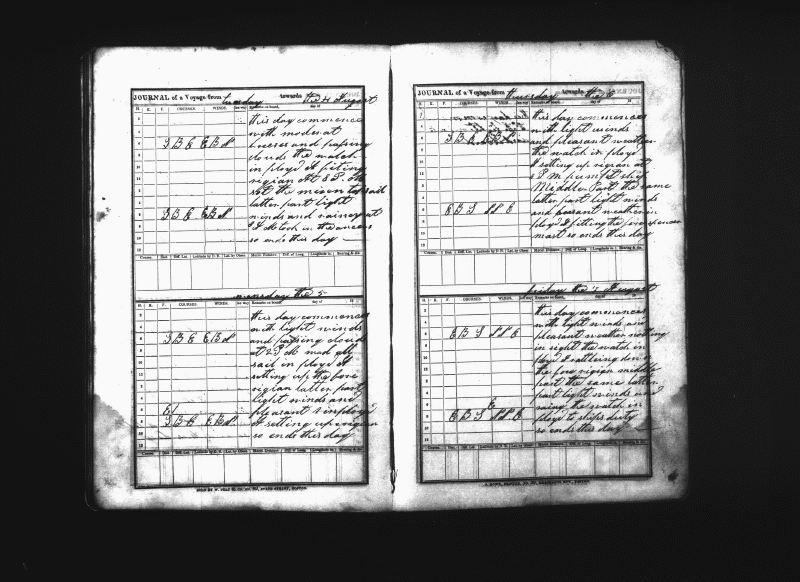 JOURNAL of a Voyage from Tuesday towards the 4 August
H. K. F. COURSES. WINDS. Lee way Remarks on board, day of 18
this day commence
S B E E B N with moderat
breeses and passing
clouds the watch
in ploye d fiting
rigian At 8 P. M
set the mizen topsail
latter part light
S B E E B N winds and rainey at
so ends this day
Course. Dist. Diff. Lat. Latitude by D. R. Lat. by Obser. Merid. Distance. Diff. of Long. Longitude in. Bearing & dis.
the 5
H. K. F. COURSES. WINDS. Lee way Remarks on board, day of 18
this day commences
with light winds
S B E E B N and passing cloud
at 2 P M mad all
sail in ploye d
setting up the fore
rigian latter part
light winds and
pleasant in ploye d
S B E E B N. at setting up rigian
so ends this day
Course. Dist. Diff. Lat. Latitude by D. R. Lat. by Obser. Merid. Distance. Diff. of Long. Longitude in. Bearing & dis.
JOURNAL of a Voyage from Thursday towards the 6
H. K. F. COURSES. WINDS. Lee way Remarks on board, day of 18
this day commences
with light winds
S B E E B N and pleasant weather
the watch in ploye
d setting up rigian at
P M pumpt ship
Middle Part the same
latter part light winds
E B S and pleasant weather in
ploye d fitting the fore
mast so ends this day
Course. Dis. Diff. Lat. Latitude by D. R. Lat. by Obser. Merid. Distance. Diff. of Long. Longitude in. Bearing & dis.
friday the 7 August
H. K. F. COURSES. WINDS. Lee way Remarks on board, day of 18
this day commences
with light winds and
E B S pleasant weather nothing
in sight the watch in
ploye d rattling down
the fore rigian middle
part the same latter
part light winds and
the watch in
E B S ploye d ships duty
so ends this day
Course. Dis. Diff. Lat. Latitude by D. R. Lat. by Obser. Merid. Distance. Diff. of Long. Longitude in. Bearing & dis.